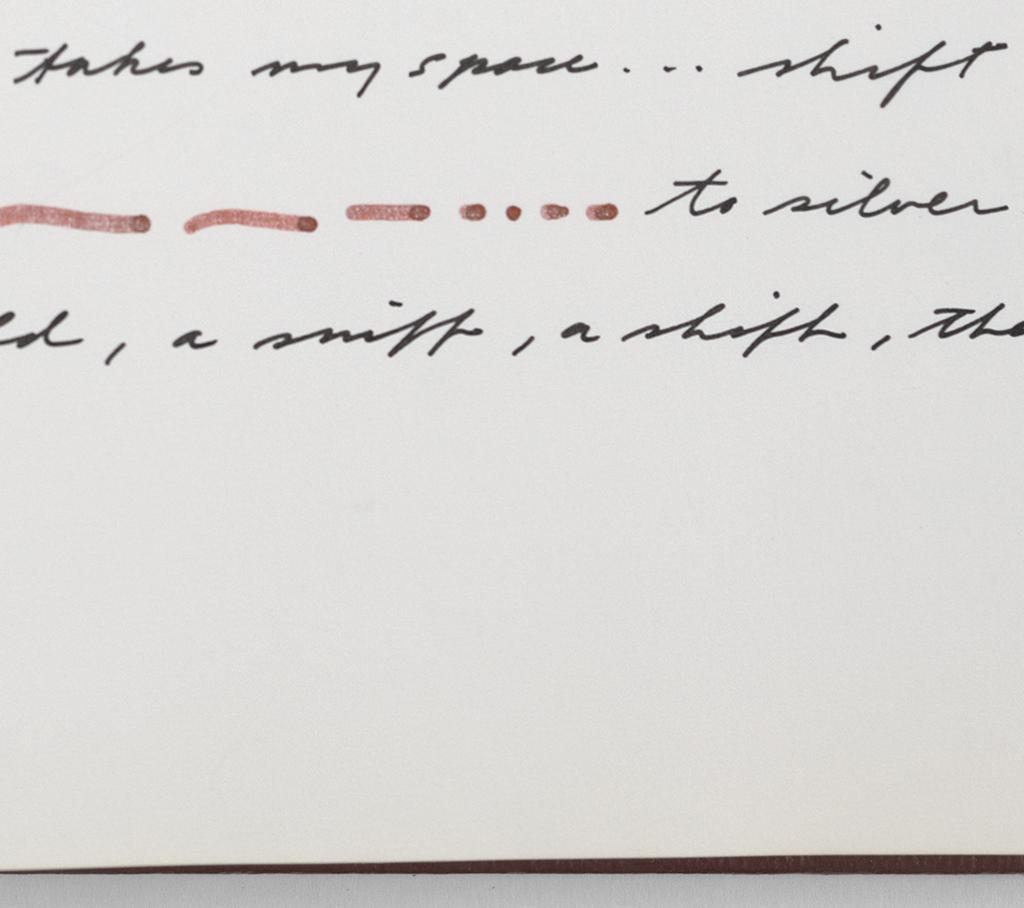 takes my space ... shift
to silver
ld, a sniff, a shift, the